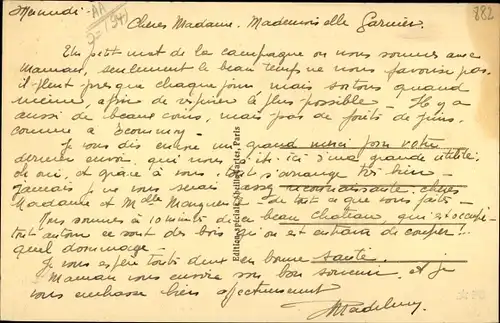 Mercredi
882
Chères Madame. Mademoiselle Garnier.
Un petit mot de la campagne où nous sommes avec
Maman, seulement le beau temps ne nous favorise pas
il pleut presque chaque jour, mais sortons quand
même, afin de respirer le plus possible — Il y a
aussi de beaux coins, mais pas de forêts de pins,
comme à Ecommoy —
Je vous dis encore un grand merci pour votre
dernier envoi, qui nous est ici d'une grande utilité,
oh oui, et grâce à vous tout s'arrange très bien
jamais je ne vous serai assez reconnaissante. chères
Madame et Melle Marguerite de tout ce que vous faites —
Nous sommes à 10 minutes d'un beau château, qui est occupé
tout autour ce sont des bois qu'on est en train de couper !..
quel dommage. —
Je vous espère toutes deux en bonne santé. —
Maman vous envoie son bon souvenir, et je
vous embrasse bien affectueusement
Edition spéciale Paris